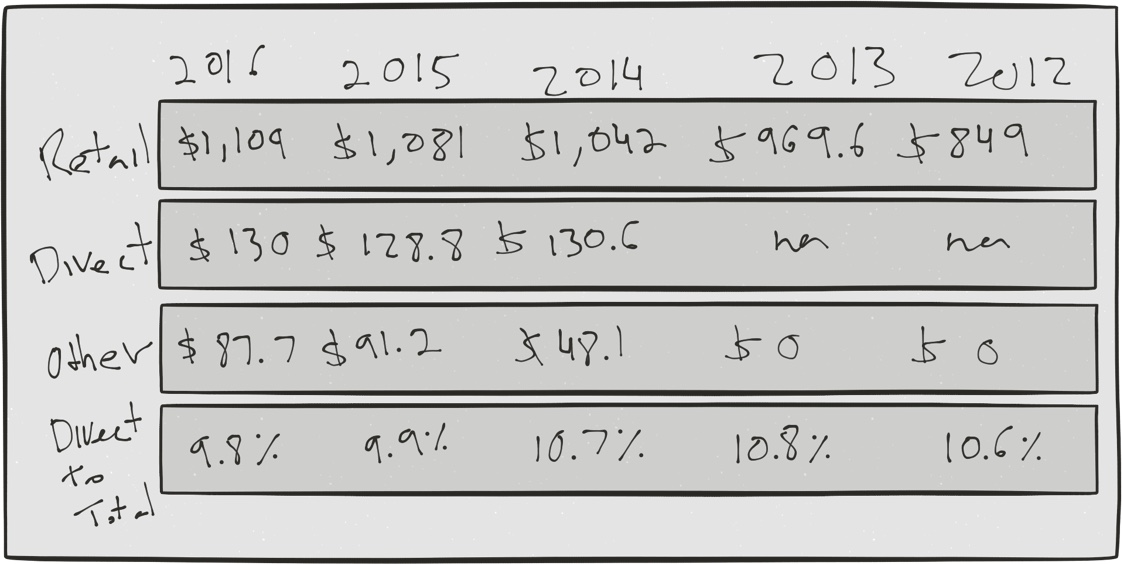 2016 2015 2014 2013 2012
Retail $1,109 $1,081 $1,042 $969.6 $849
Direct $130 $128.8 $130.6 na na
Other $87.7 $91.2 $48.1 $0 $0
Direct
to
Total 9.8% 9.9% 10.7% 10.8% 10.6%